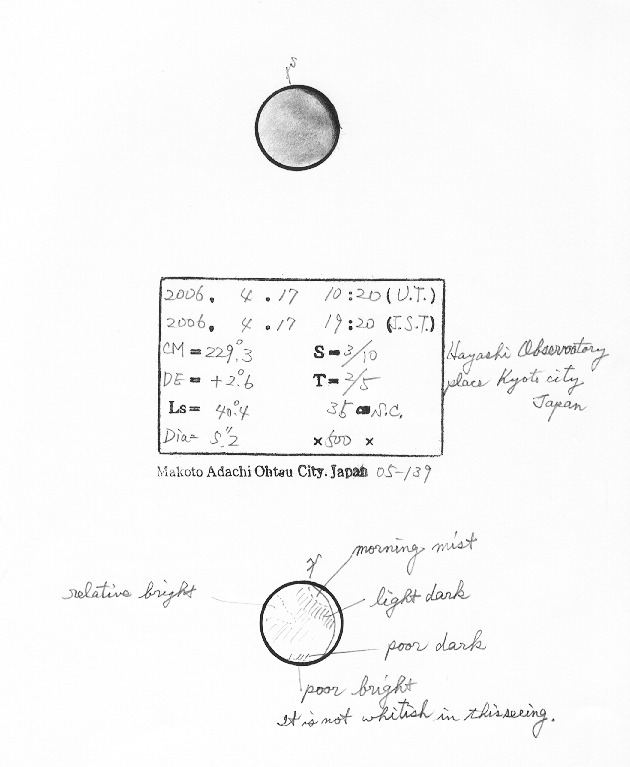 2006. 4.17 10:20 (U.T.)
2006. 4.17 19:20 (J.S.T.)
CM = 229°.3 S = 3/10
DE = +2°.6 T = 2/5
Ls = 40°.4 35 cm S.C.
Dia = 5".2 ×500 ×
Hayashi Observatory
place Kyoto city
Japan
Makoto Adachi Ohtsu City. Japan 05-139
morning mist
relative bright
light dark
poor dark
poor bright
It is not whitish in this seeing.